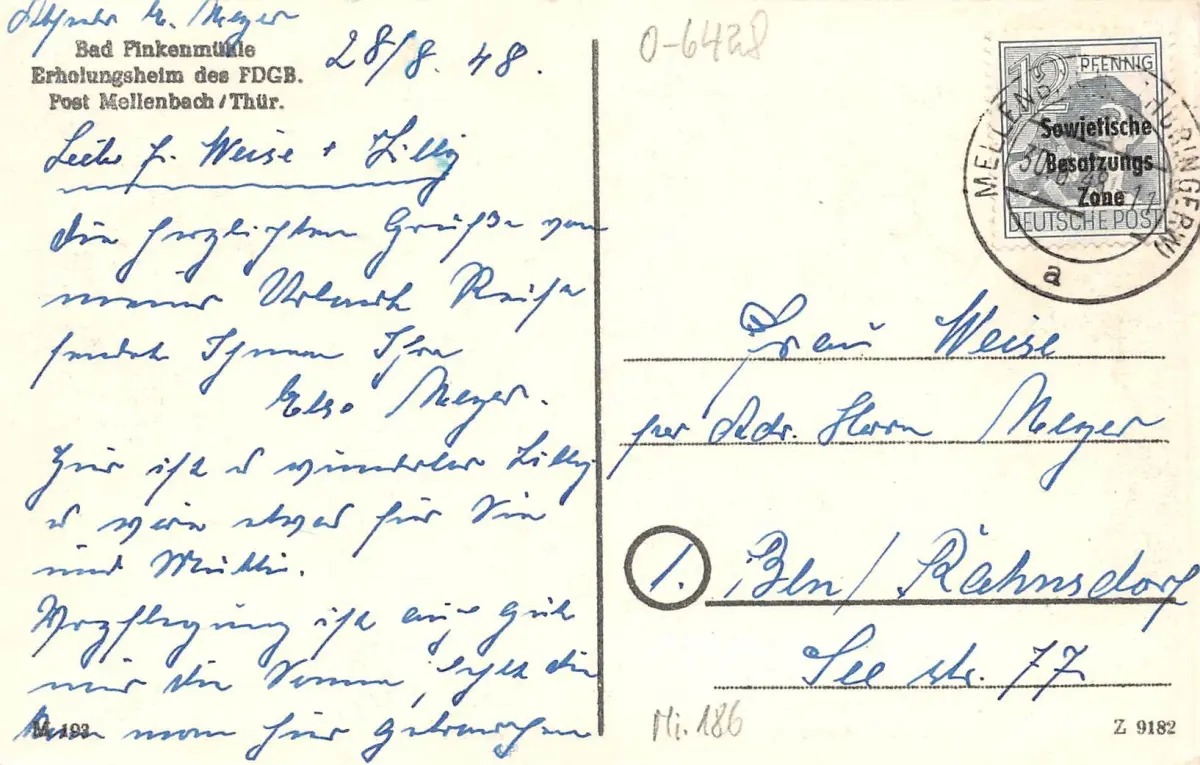 Absender E. Meyer
Bad Finkenmühle
Erholungsheim des FDGB.
Post Mellenbach/Thür.
28/8. 48.
Liebe Fr. Weise + Lilly
die herzlichsten Grüße von
meiner Urlaub Reise
sendet Ihnen Ihre
Else Meyer.
Hier ist es wunderbar Lilly
es wäre etwas für Sie
und Mutti.
Verpflegung ist auch gut
nur die Sonne fehlt die
kann man hier gebrauchen
M 193
O-6428
12 PFENNIG
Sowjetische
Besatzungs
Zone
DEUTSCHE POST
MELLENBACH (THÜRINGERW)
a
Frau Weise
per Adr. Herrn Meyer
1. Bln/ Rahnsdorf
See str. 77
Mi. 186
Z 9182